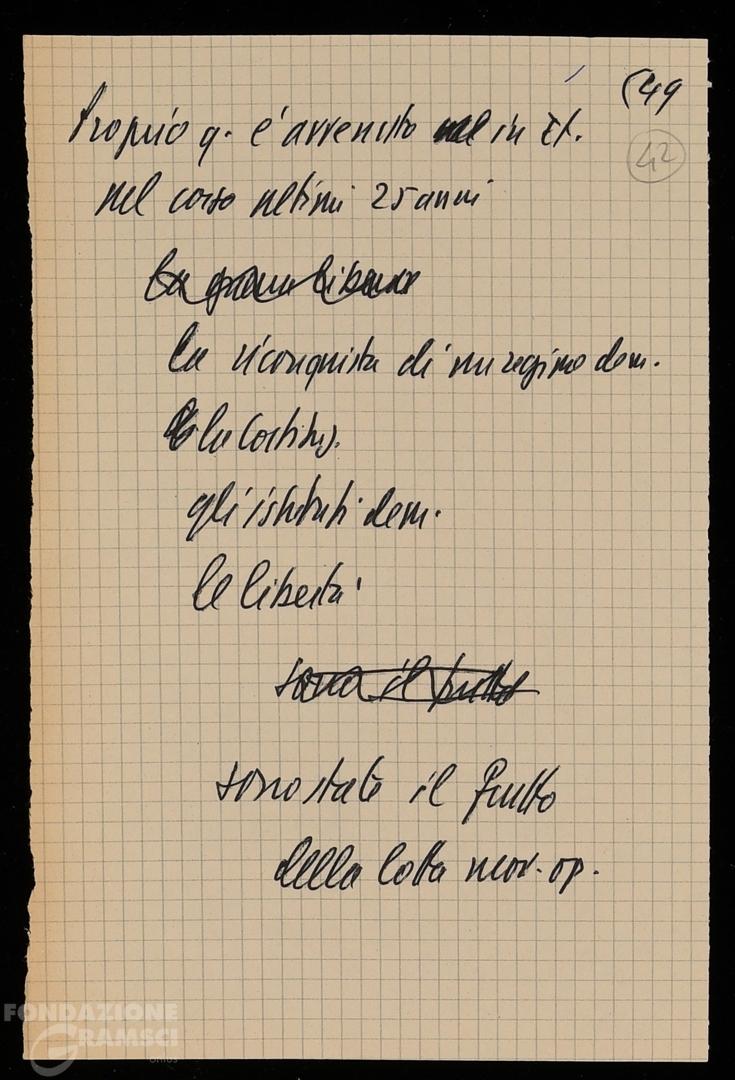 (49
42
Proprio q. è avvenuto in It.
nel corso ultimi 25 anni
la riconquista di un regime dem.
la Costituz.
gli istituti dem.
le libertà
sono il frutto
sono state il frutto
della lotta mov. op.
FONDAZIONE
GRAMSCI
onlus